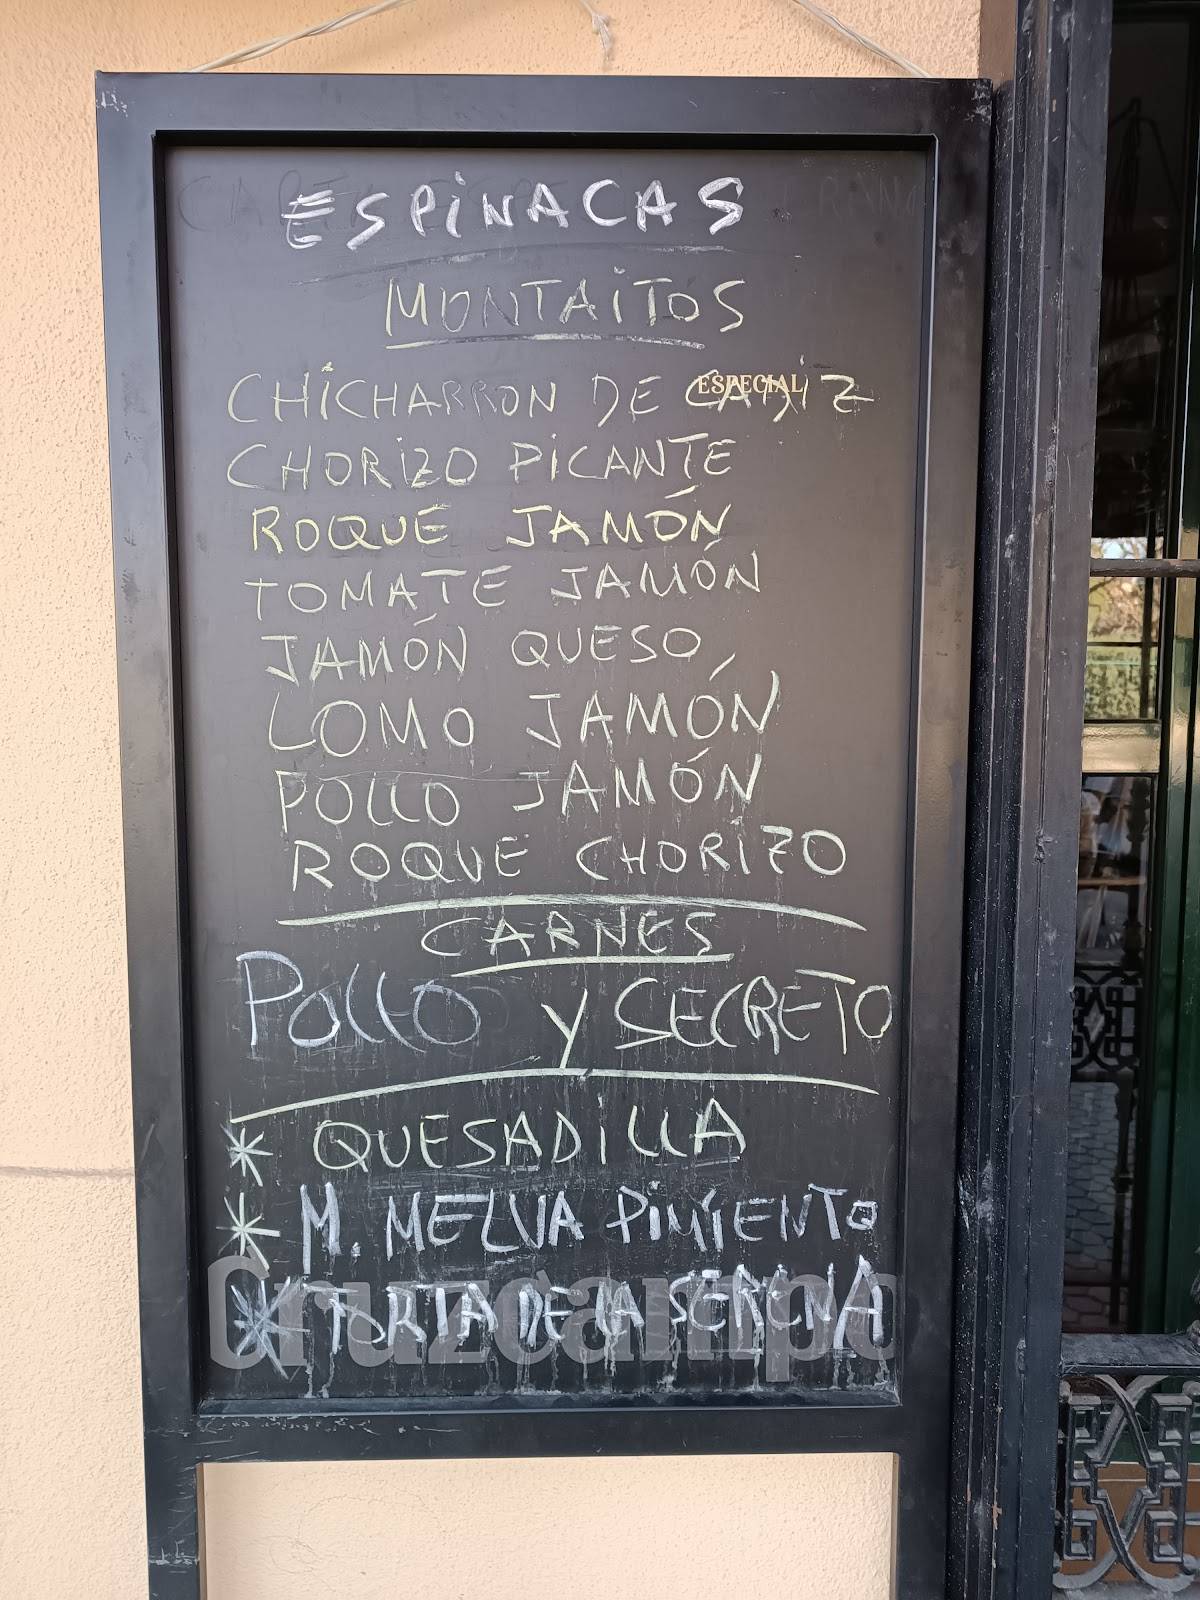 ESPINACAS
MONTAITOS
CHICHARRON DE CADIZ
ESPECIAL
CHORIZO PICANTE
ROQUE JAMÓN
TOMATE JAMÓN
JAMÓN QUESO
LOMO JAMÓN
POLLO JAMÓN
ROQUE CHORIZO
CARNES
POLLO Y SECRETO
* QUESADILLA
* M. MELVA PIMIENTO
* TORTA DE LA SERENA
Cruzcampo